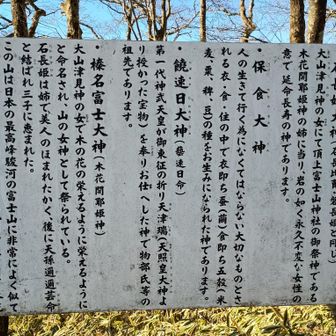 大山津見神の女にて頂上富士山神社の御祭神である
木花開耶姫神の姉に当り、岩の如く永久不変な女性の
意で延命長寿の神であります。
・保食大神
人の生きて行く為になくてはならない大切なものとさ
れる衣・食・住の中で衣即ち蚕(繭)食即ち五穀(米、
麦、粟、稗、豆)の種をお生みになられた神であります。
・饒速日大神(饒速日命)
第一代神武天皇が御東征の折り天津瑞(天照皇大神よ
り授かった宝物)を奉りお仕へした神で物部氏等の
祖先であります。
・榛名富士大神(木花開耶姫神)
大山津見神の女で木の花の栄えるように栄えるように
と命名され、山の女神として祭られている。
石長姫は姉で美人のほまれたかく、後に天孫邇邇芸命
と結ばれ三子に恵まれた。
この山は日本の最高峰駿河の富士山に非常によく似て